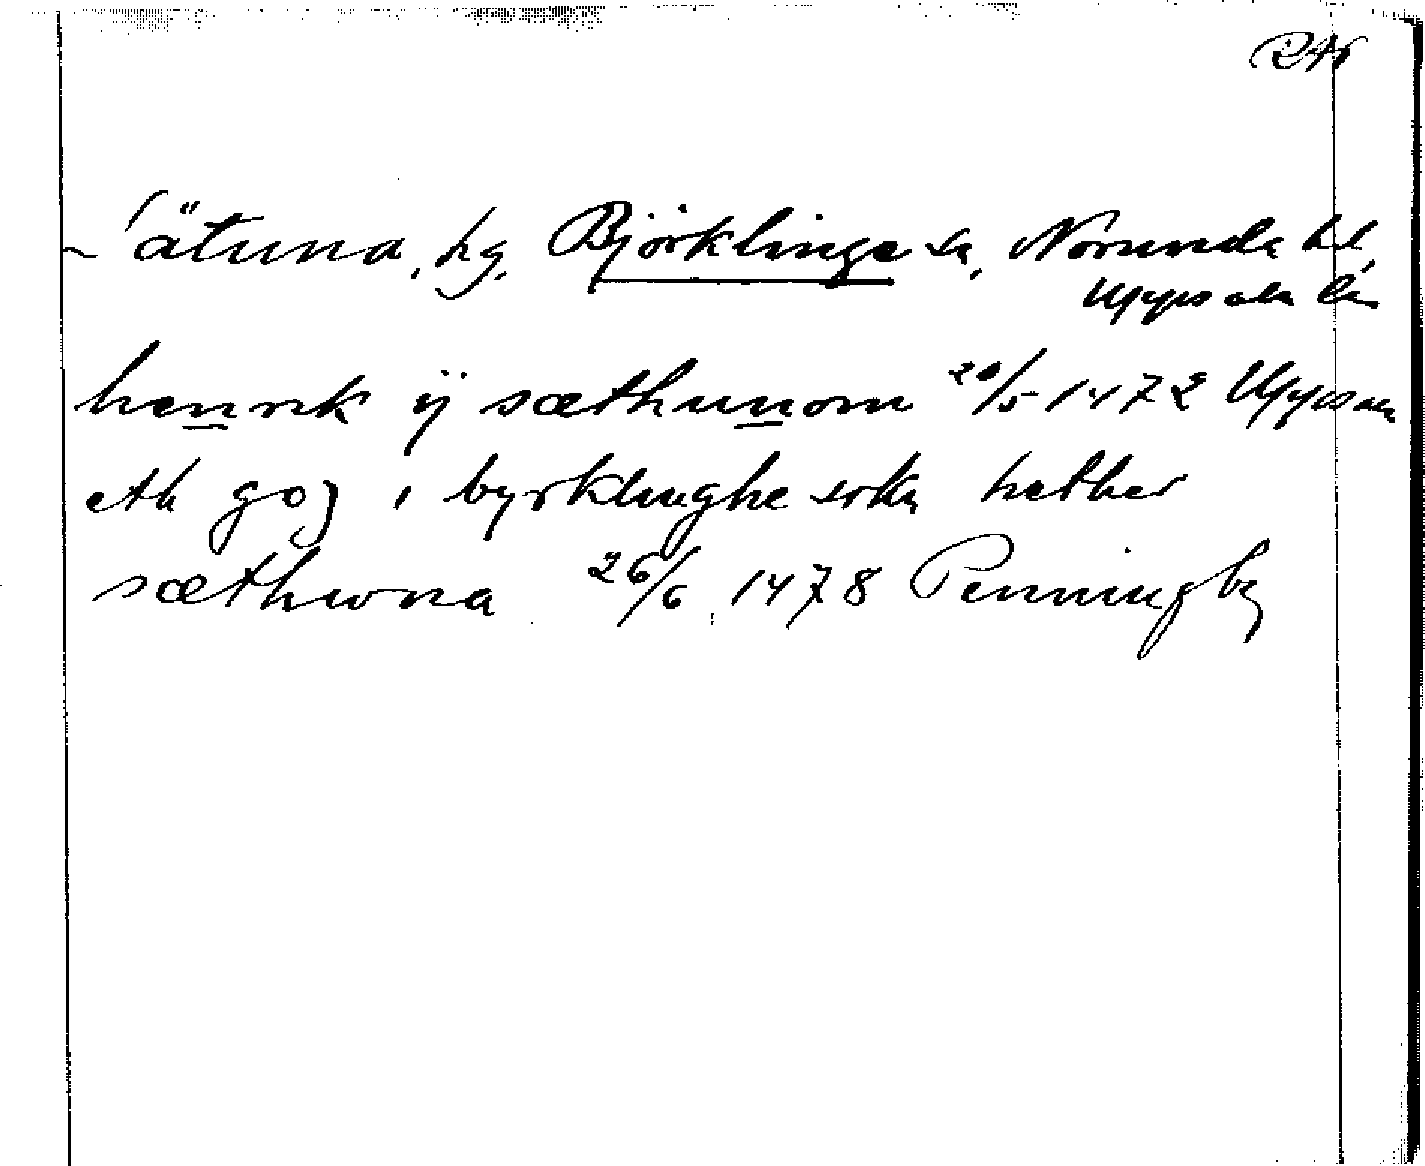 RAp
Sätuna, hg, Björklinge sn, Norunda hd,
Uppsala län
henrik ij sæthunom 20/5 1472 Uppsala
eth goz i byrklinghe sokn hether
sæthwna 26/6 1478 Penningby